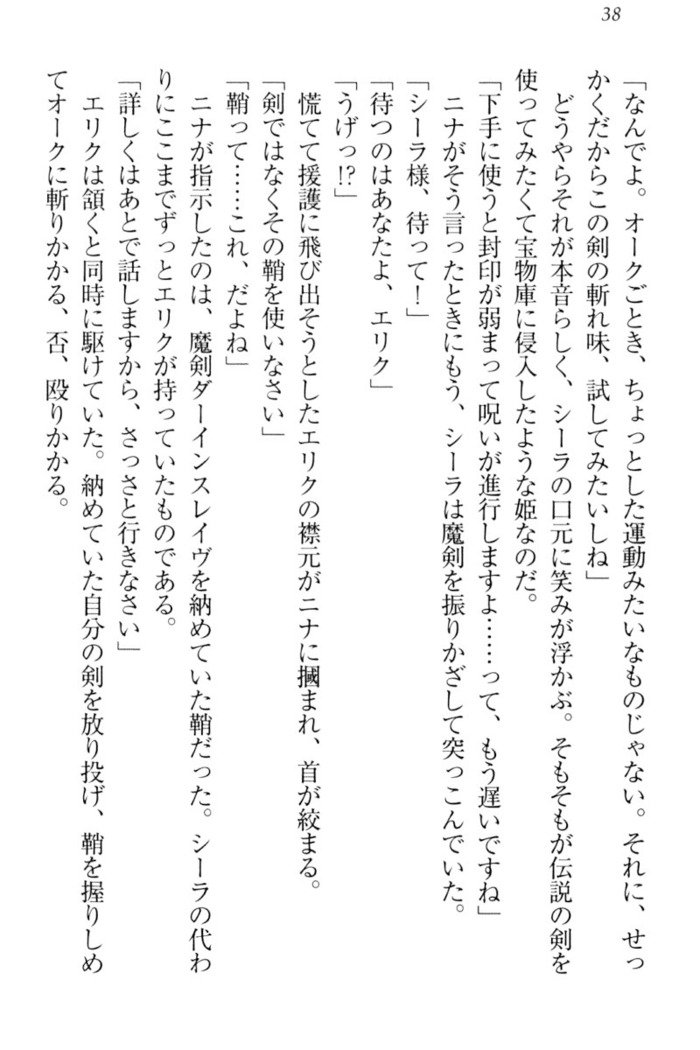 38
「なんでよ。オークごとき、ちょっとした運動みたいなものじゃない。それに、せっ
かくだからこの剣の斬れ味、試してみたいしね」
　どうやらそれが本音らしく、シーラの口元に笑みが浮かぶ。そもそもが伝説の剣を
使ってみたくて宝物庫に侵入したような姫なのだ。
「下手に使うと封印が弱まって呪いが進行しますよ……って、もう遅いですね」
　ニナがそう言ったときにもう、シーラは魔剣を振りかざして突っこんでいた。
「シーラ様、待って！」
「待つのはあなたよ、エリク」
「うげっ!?」
　慌てて援護に飛び出そうとしたエリクの襟元がニナに摑まれ、首が絞まる。
「剣ではなくその鞘を使いなさい」
「鞘って……これ、だよね」
　ニナが指示したのは、魔剣ダーインスレイヴを納めていた鞘だった。シーラの代わ
りにここまでずっとエリクが持っていたものである。
「詳しくはあとで話しますから、さっさと行きなさい」
　エリクは頷くと同時に駆けていた。納めていた自分の剣を放り投げ、鞘を握りしめ
てオークに斬りかかる、否、殴りかかる。